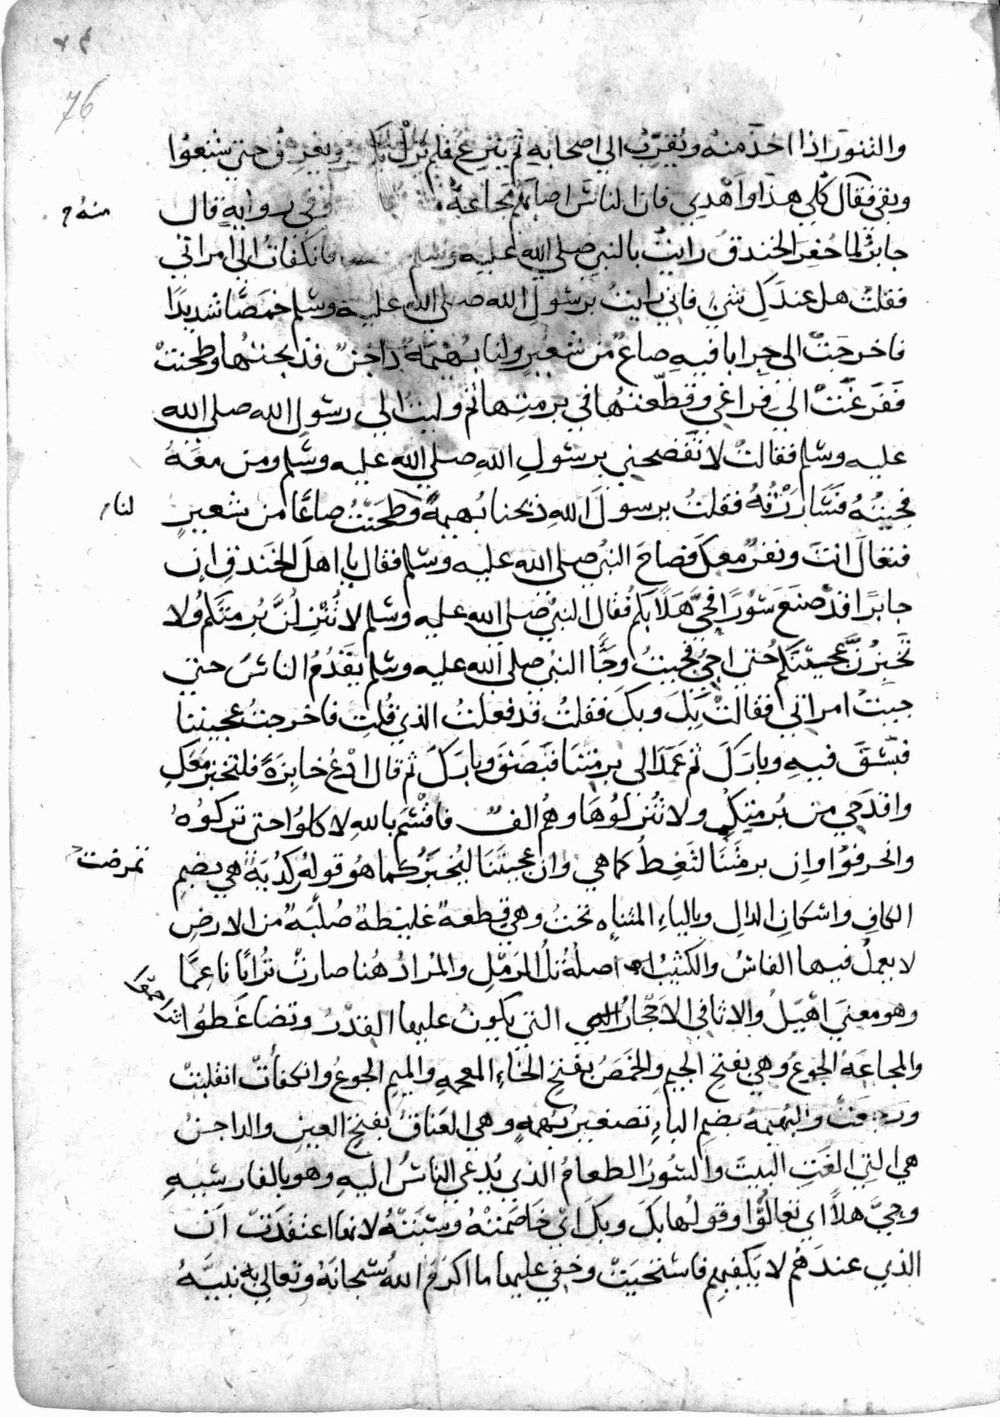 76
والتنور اذا اخذ منه ويقرب الى اصحابه ثم ينزع فلم يزل يكسر ويغرف حتى شبعوا
وبقي فقال كلي هذا واهدي فان الناس اصابتهم مجاعة وفي رواية قال
جابر لما حفر الخندق رايت بالنبي صلى الله عليه وسلم فانكفات الى امراتي
منه
فقلت هل عندك شي فاني رايت برسول الله صلى الله عليه وسلم خمصا شديدا
فاخرجت الى جرابا فيه صاع من شعير ولنا بهيمة داجن فذبحتها وطحنت
ففرغت الى فراغي وقطعتها في برمتها ثم وليت الى رسول الله صلى الله
عليه وسلم فقالت لا تفضحني برسول الله صلى الله عليه وسلم ومن معه
فجيته فساررته فقلت يرسول الله ذبحنا بهيمة وطحنت صاعا من شعير
لنا
فتعال انت ونفر معك فصاح النبي صلى الله عليه وسلم فقال يا اهل الخندق ان
جابرا قد صنع سورا فحي هلا بكم فقال النبي صلى الله عليه وسلم لا تنزلن برمتكم ولا
تخبزن عجينتكم حتى اجي فجيت وجا النبي صلى الله عليه وسلم يقدم الناس حتى
جيت امراتي فقالت بك وبك فقلت قد فعلت الذي قلت فاخرجت عجيننا
فبسق فيه وبارك ثم عمد الى برمتنا فبصق وبارك ثم قال ادع خابزة فلتخبز معك
واقدحي من برمتكم ولا تنزلوها وهم الف فاقسم بالله لاكلوا حتى تركوه
وانحرفوا وان برمتنا لتغط كما هي وان عجيننا ليخبز كما هو قوله كدية هي بضم
الكاف واسكان الدال وبالياء المثناه تحت وهي قطعة غليظة صلبة من الارض
لا يعمل فيها الفاس والكثيب اصله تل الرمل والمراد هنا صارت ترابا ناعما
وهو معنى اهيل والاثافي الاحجار التي يكون عليها القدر وتضاغطوا
تزاحموا
والمجاعة الجوع وهي بفتح الجيم والخمص بفتح الخاء المعجمه والميم الجوع وانكفأت انقلبت
ورجعت والبهيمة بضم الباء تصغير بهمة وهي العناق بفتح العين والداجن
هي التي الفت البيت والسور الطعام الذي يدعى الناس اليه وهو بالفارسيه
وحي هلا اي تعالوا وقولها بك وبك اي خاصمته وسبته لانها اعتقدت ان
الذي عندهم لا يكفيهم فاستحيت وخفي عليها ما اكرم الله سبحانه وتعالى به نبيه